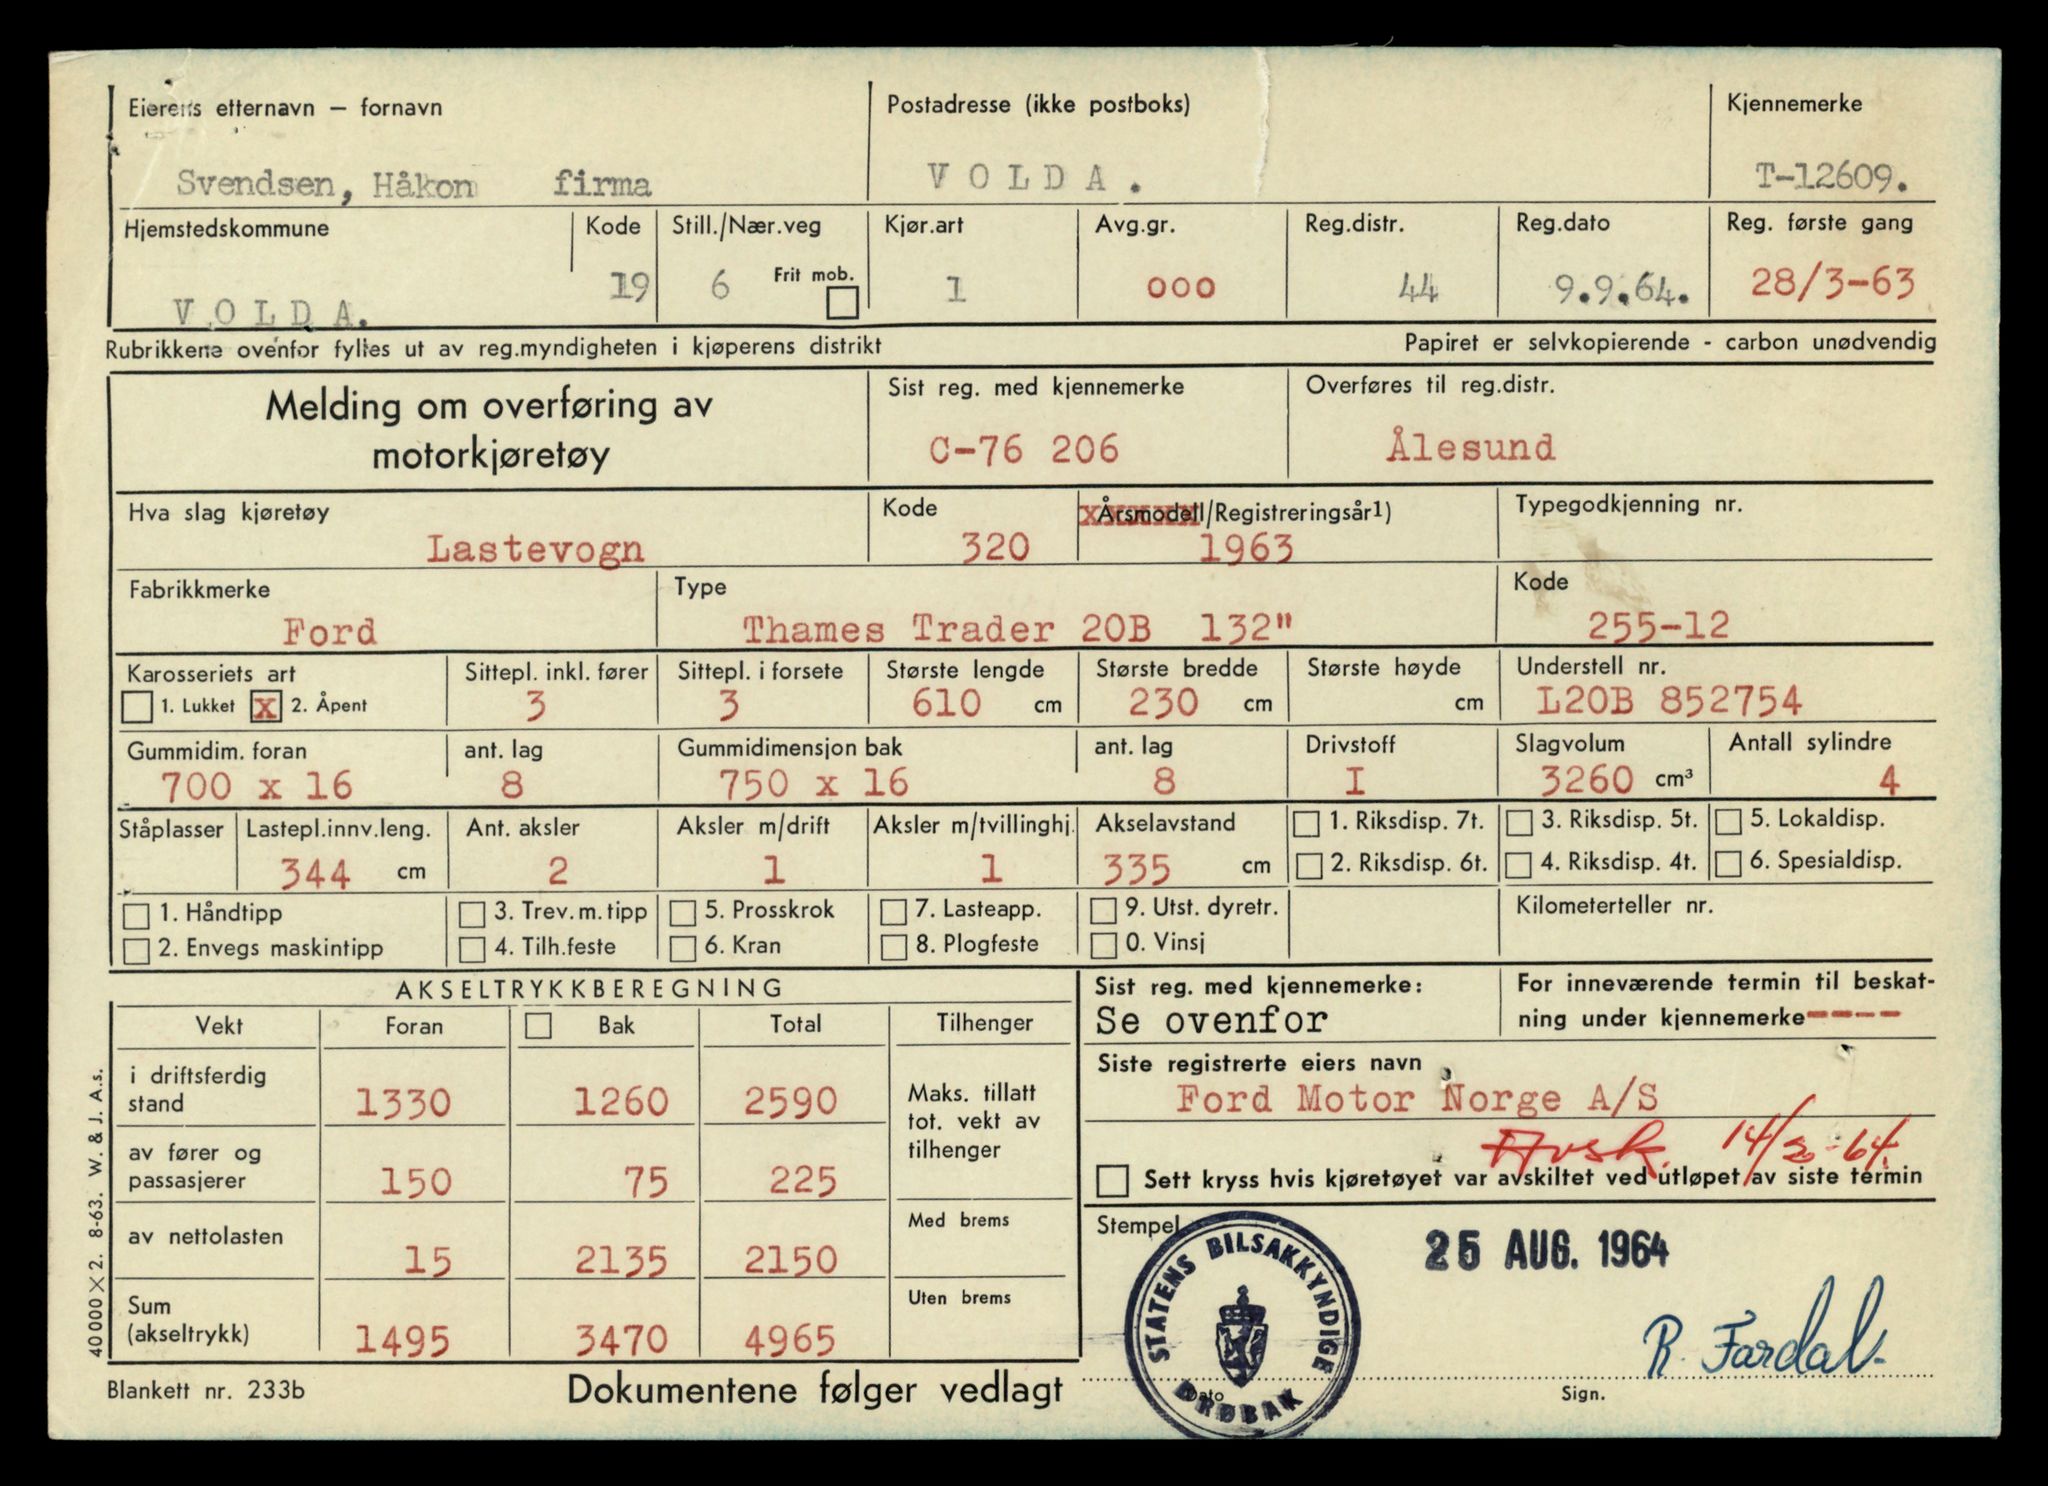 Eierens etternavn – fornavn Postadresse (ikke postboks) Kjennemerke
Svendsen, Håkon firma V O L D A . T-12609.
Hjemstedskommune Kode Still./Nær.veg Kjør.art Avg.gr. Reg.distr. Reg.dato Reg. første gang
V O L D A. 19 6 Frit mob. 1 000 44 9.9.64. 28/3-63
Rubrikkene ovenfor fylles ut av reg.myndigheten i kjøperens distrikt Papiret er selvkopierende - carbon unødvendig
Melding om overføring av Sist reg. med kjennemerke Overføres til reg.distr.
motorkjøretøy C-76 206 Ålesund
Hva slag kjøretøy Kode Årsmodell/Registreringsår1) Typegodkjenning nr.
Lastevogn 320 1963
Fabrikkmerke Type Kode
Ford Thames Trader 20B 132" 255-12
Karosseriets art Sittepl. inkl. fører Sittepl. i forsete Største lengde Største bredde Største høyde Understell nr.
1. Lukket x 2. Åpent 3 3 610 cm 230 cm cm L20B 852754
Gummidim. foran ant. lag Gummidimensjon bak ant. lag Drivstoff Slagvolum Antall sylindre
700 x 16 8 750 x 16 8 I 3260 cm³ 4
Ståplasser Lastepl.innv.leng. Ant. aksler Aksler m/drift Aksler m/tvillinghj. Akselavstand 1. Riksdisp. 7t. 3. Riksdisp. 5t. 5. Lokaldisp.
344 cm 2 1 1 335 cm 2. Riksdisp. 6t. 4. Riksdisp. 4t. 6. Spesialdisp.
1. Håndtipp 3. Trev. m. tipp 5. Prosskrok 7. Lasteapp. 9. Utst. dyretr. Kilometerteller nr.
2. Envegs maskintipp 4. Tilh.feste 6. Kran 8. Plogfeste 0. Vinsj
AKSELTRYKKBEREGNING Sist reg. med kjennemerke: For inneværende termin til beskat-
Se ovenfor ning under kjennemerke----
Vekt Foran Bak Total Tilhenger
Siste registrerte eiers navn
Ford Motor Norge A/S
i driftsferdig stand 1330 1260 2590 Maks. tillatt tot. vekt av tilhenger
Avsk. 14/2-64.
av fører og passasjerer 150 75 225
Sett kryss hvis kjøretøyet var avskiltet ved utløpet av siste termin
av nettolasten 15 2135 2150 Med brems
Stempel
STATENS BILSAKKYNDIGE DRØBAK
25 AUG. 1964
Sum (akseltrykk) 1495 3470 4965 Uten brems
R. Fardal.
Blankett nr. 233b Dokumentene følger vedlagt Dato Sign.
40000 × 2. 8-63. W. & J. A.s.